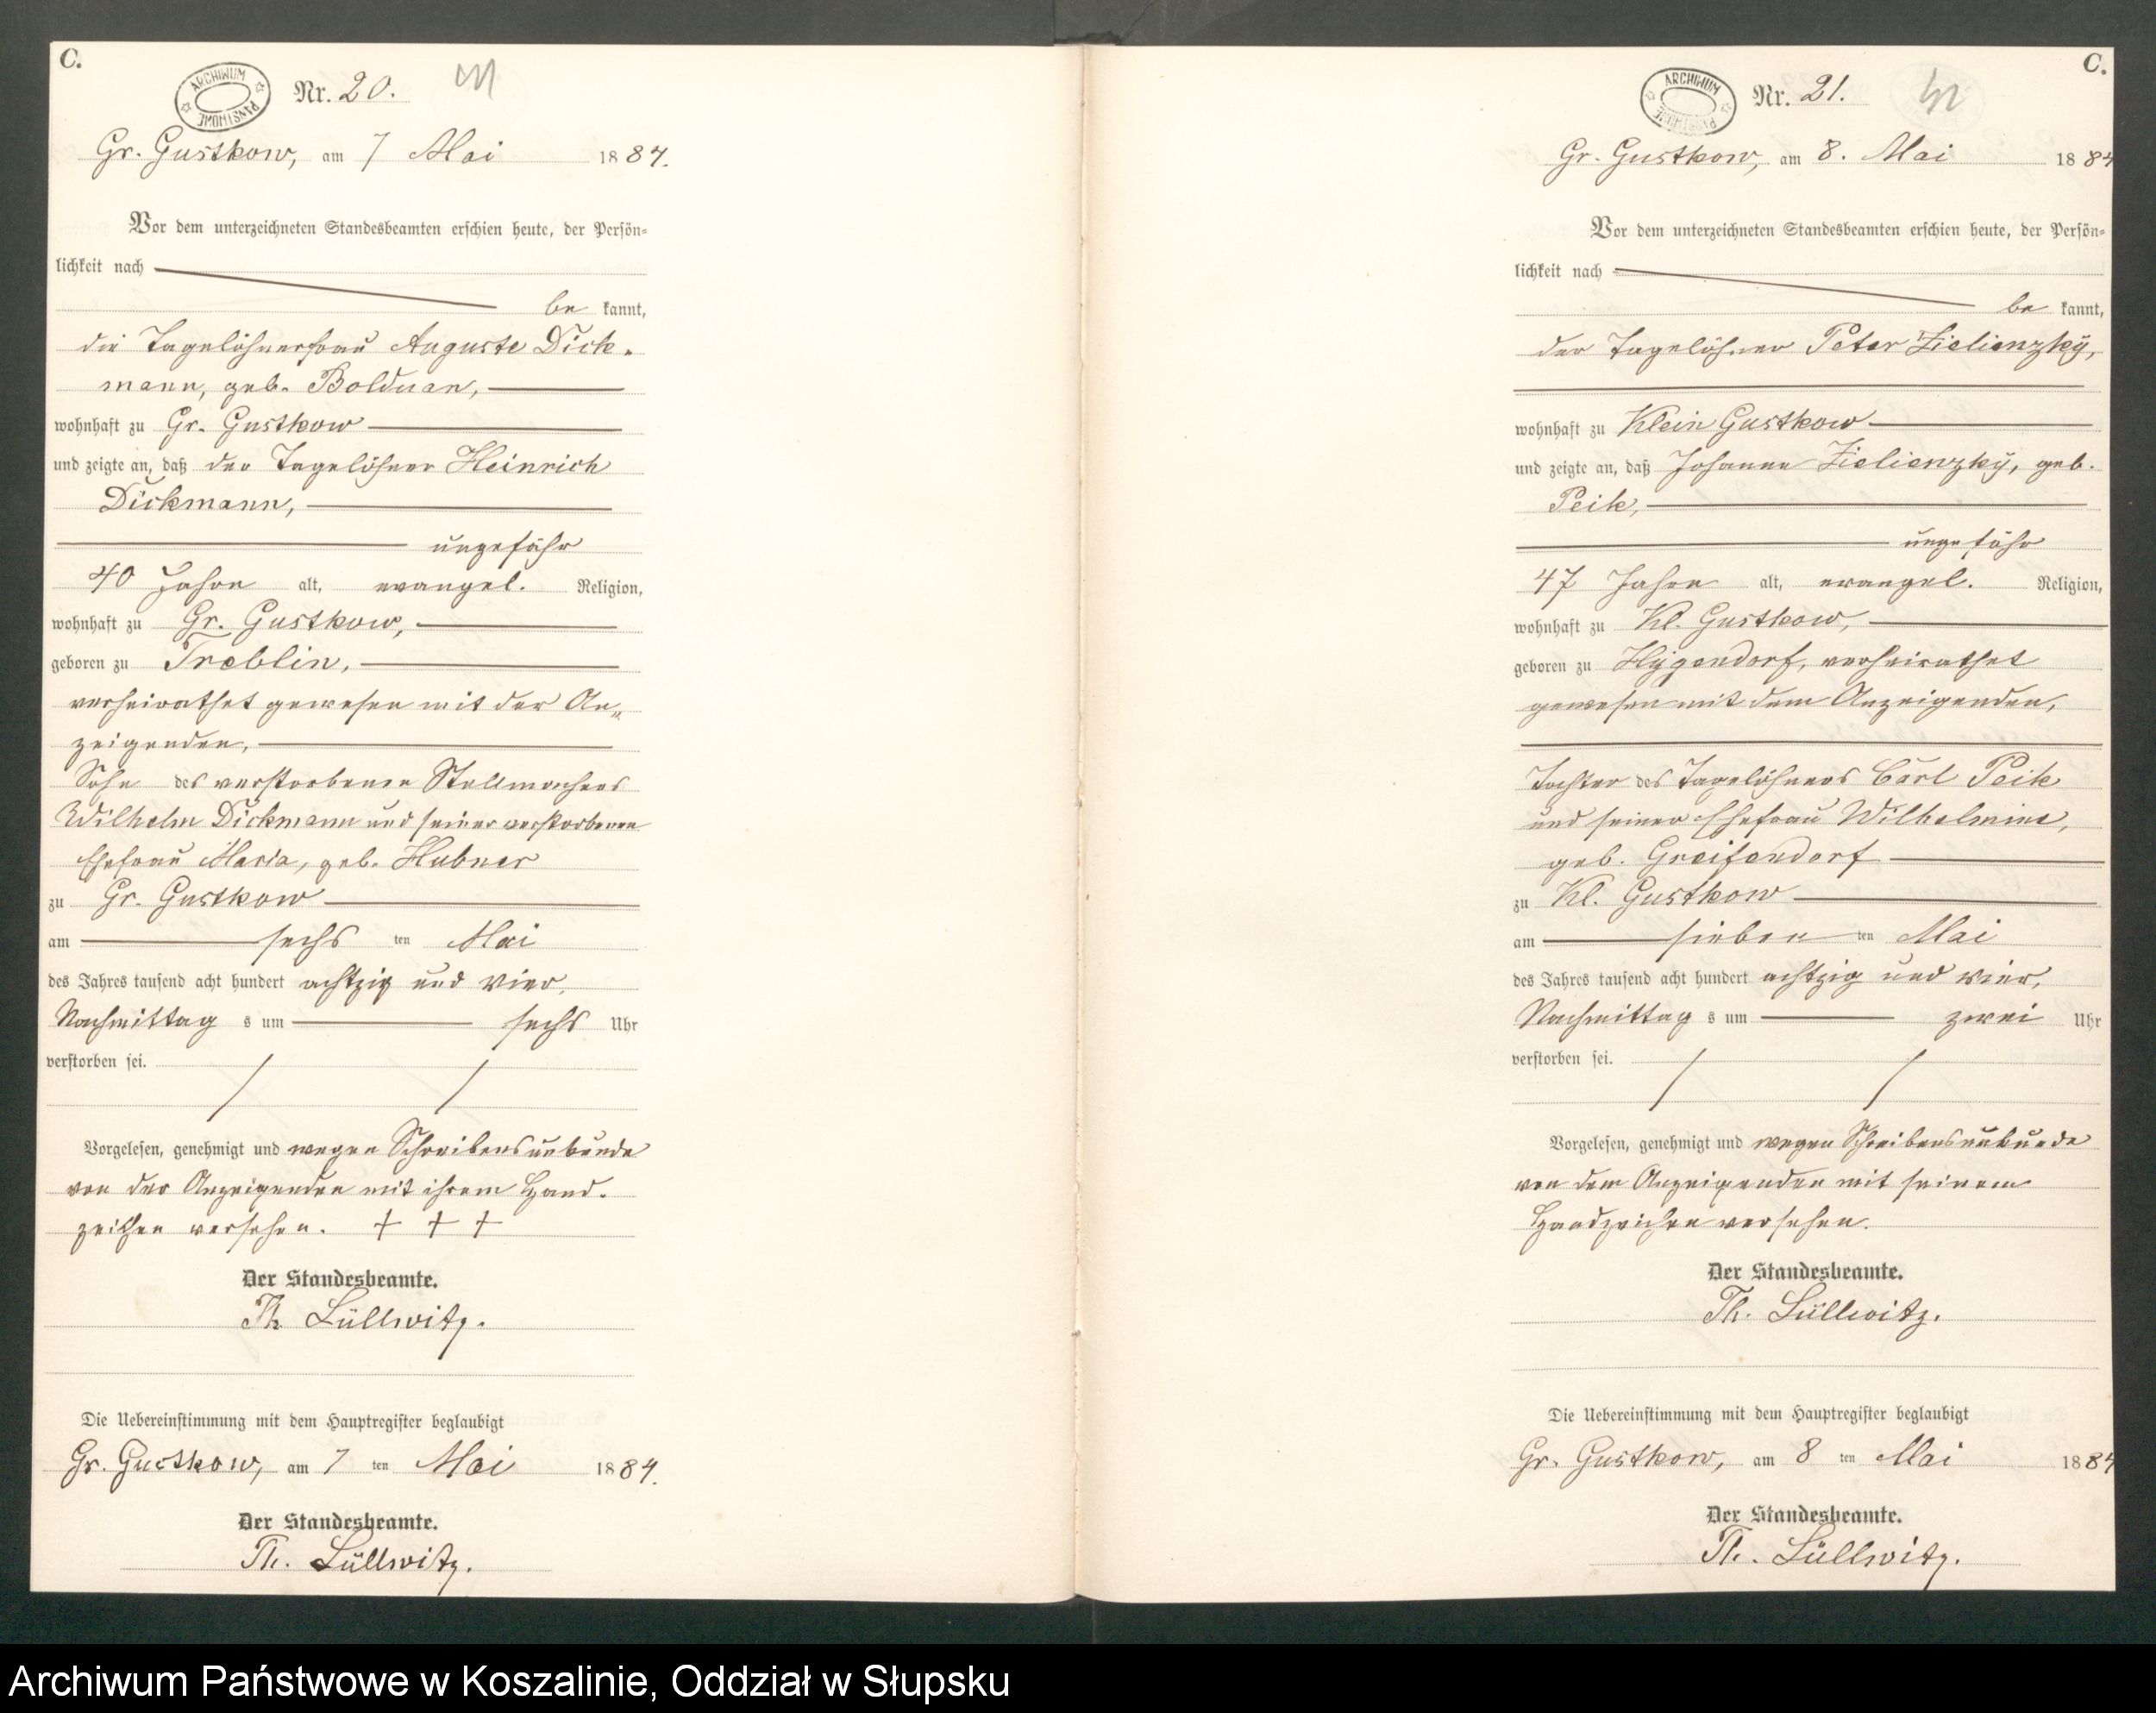 C.
ARCHIWUM PAŃSTWOWE
Nr. 20.
Gr. Gustkow, am 7 Mai 1884.
Vor dem unterzeichneten Standesbeamten erschien heute, der Persön=
lichkeit nach
be kannt,
die Tagelöhnerfrau Auguste Dick-
mann, geb. Bolduan,
wohnhaft zu Gr. Gustkow
und zeigte an, daß der Tagelöhner Heinrich
Dickmann,
ungefähr
40 Jahre alt, evangel. Religion,
wohnhaft zu Gr. Gustkow,
geboren zu Treblin,
verheirathet gewesen mit der An„
zeigenden,
Sohn des verstorbenen Stellmachers
Wilhelm Dickmann und seiner verstorbenen
Ehefrau Maria, geb. Hubner
zu Gr. Gustkow
am sechs ten Mai
des Jahres tausend acht hundert achtzig und vier,
Nachmittag s um sechs Uhr
verstorben sei.
Vorgelesen, genehmigt und wegen Schreibensunkunde
von der Anzeigenden mit ihrem Hand-
zeichen versehen. + + +
Der Standesbeamte.
Th Lüllwitz.
Die Uebereinstimmung mit dem Hauptregister beglaubigt
Gr. Gustkow, am 7 ten Mai 1884.
Der Standesbeamte.
Th. Lüllwitz.
C.
ARCHIWUM PAŃSTWOWE
Nr. 21.
Gr. Gustkow, am 8. Mai 1884
Vor dem unterzeichneten Standesbeamten erschien heute, der Persön=
lichkeit nach
be kannt,
der Tagelöhner Peter Zielienzky,
wohnhaft zu Klein Gustkow
und zeigte an, daß Johanne Zielienzky, geb.
Peik,
ungefähr
47 Jahre alt, evangel. Religion,
wohnhaft zu Kl. Gustkow,
geboren zu Hygendorf, verheirathet
gewesen mit dem Anzeigenden,
Tochter des Tagelöhners Carl Peik
und seiner Ehefrau Wilhelmine,
geb. Greifendorf
zu Kl. Gustkow
am sieben ten Mai
des Jahres tausend acht hundert achtzig und vier,
Nachmittag s um zwei Uhr
verstorben sei.
Vorgelesen, genehmigt und wegen Schreibensunkunde
von dem Anzeigenden mit seinem
Handzeichen versehen.
Der Standesbeamte.
Th. Lüllwitz.
Die Uebereinstimmung mit dem Hauptregister beglaubigt
Gr. Gustkow, am 8 ten Mai 1884
Der Standesbeamte.
Th. Lüllwitz.
Archiwum Państwowe w Koszalinie, Oddział w Słupsku